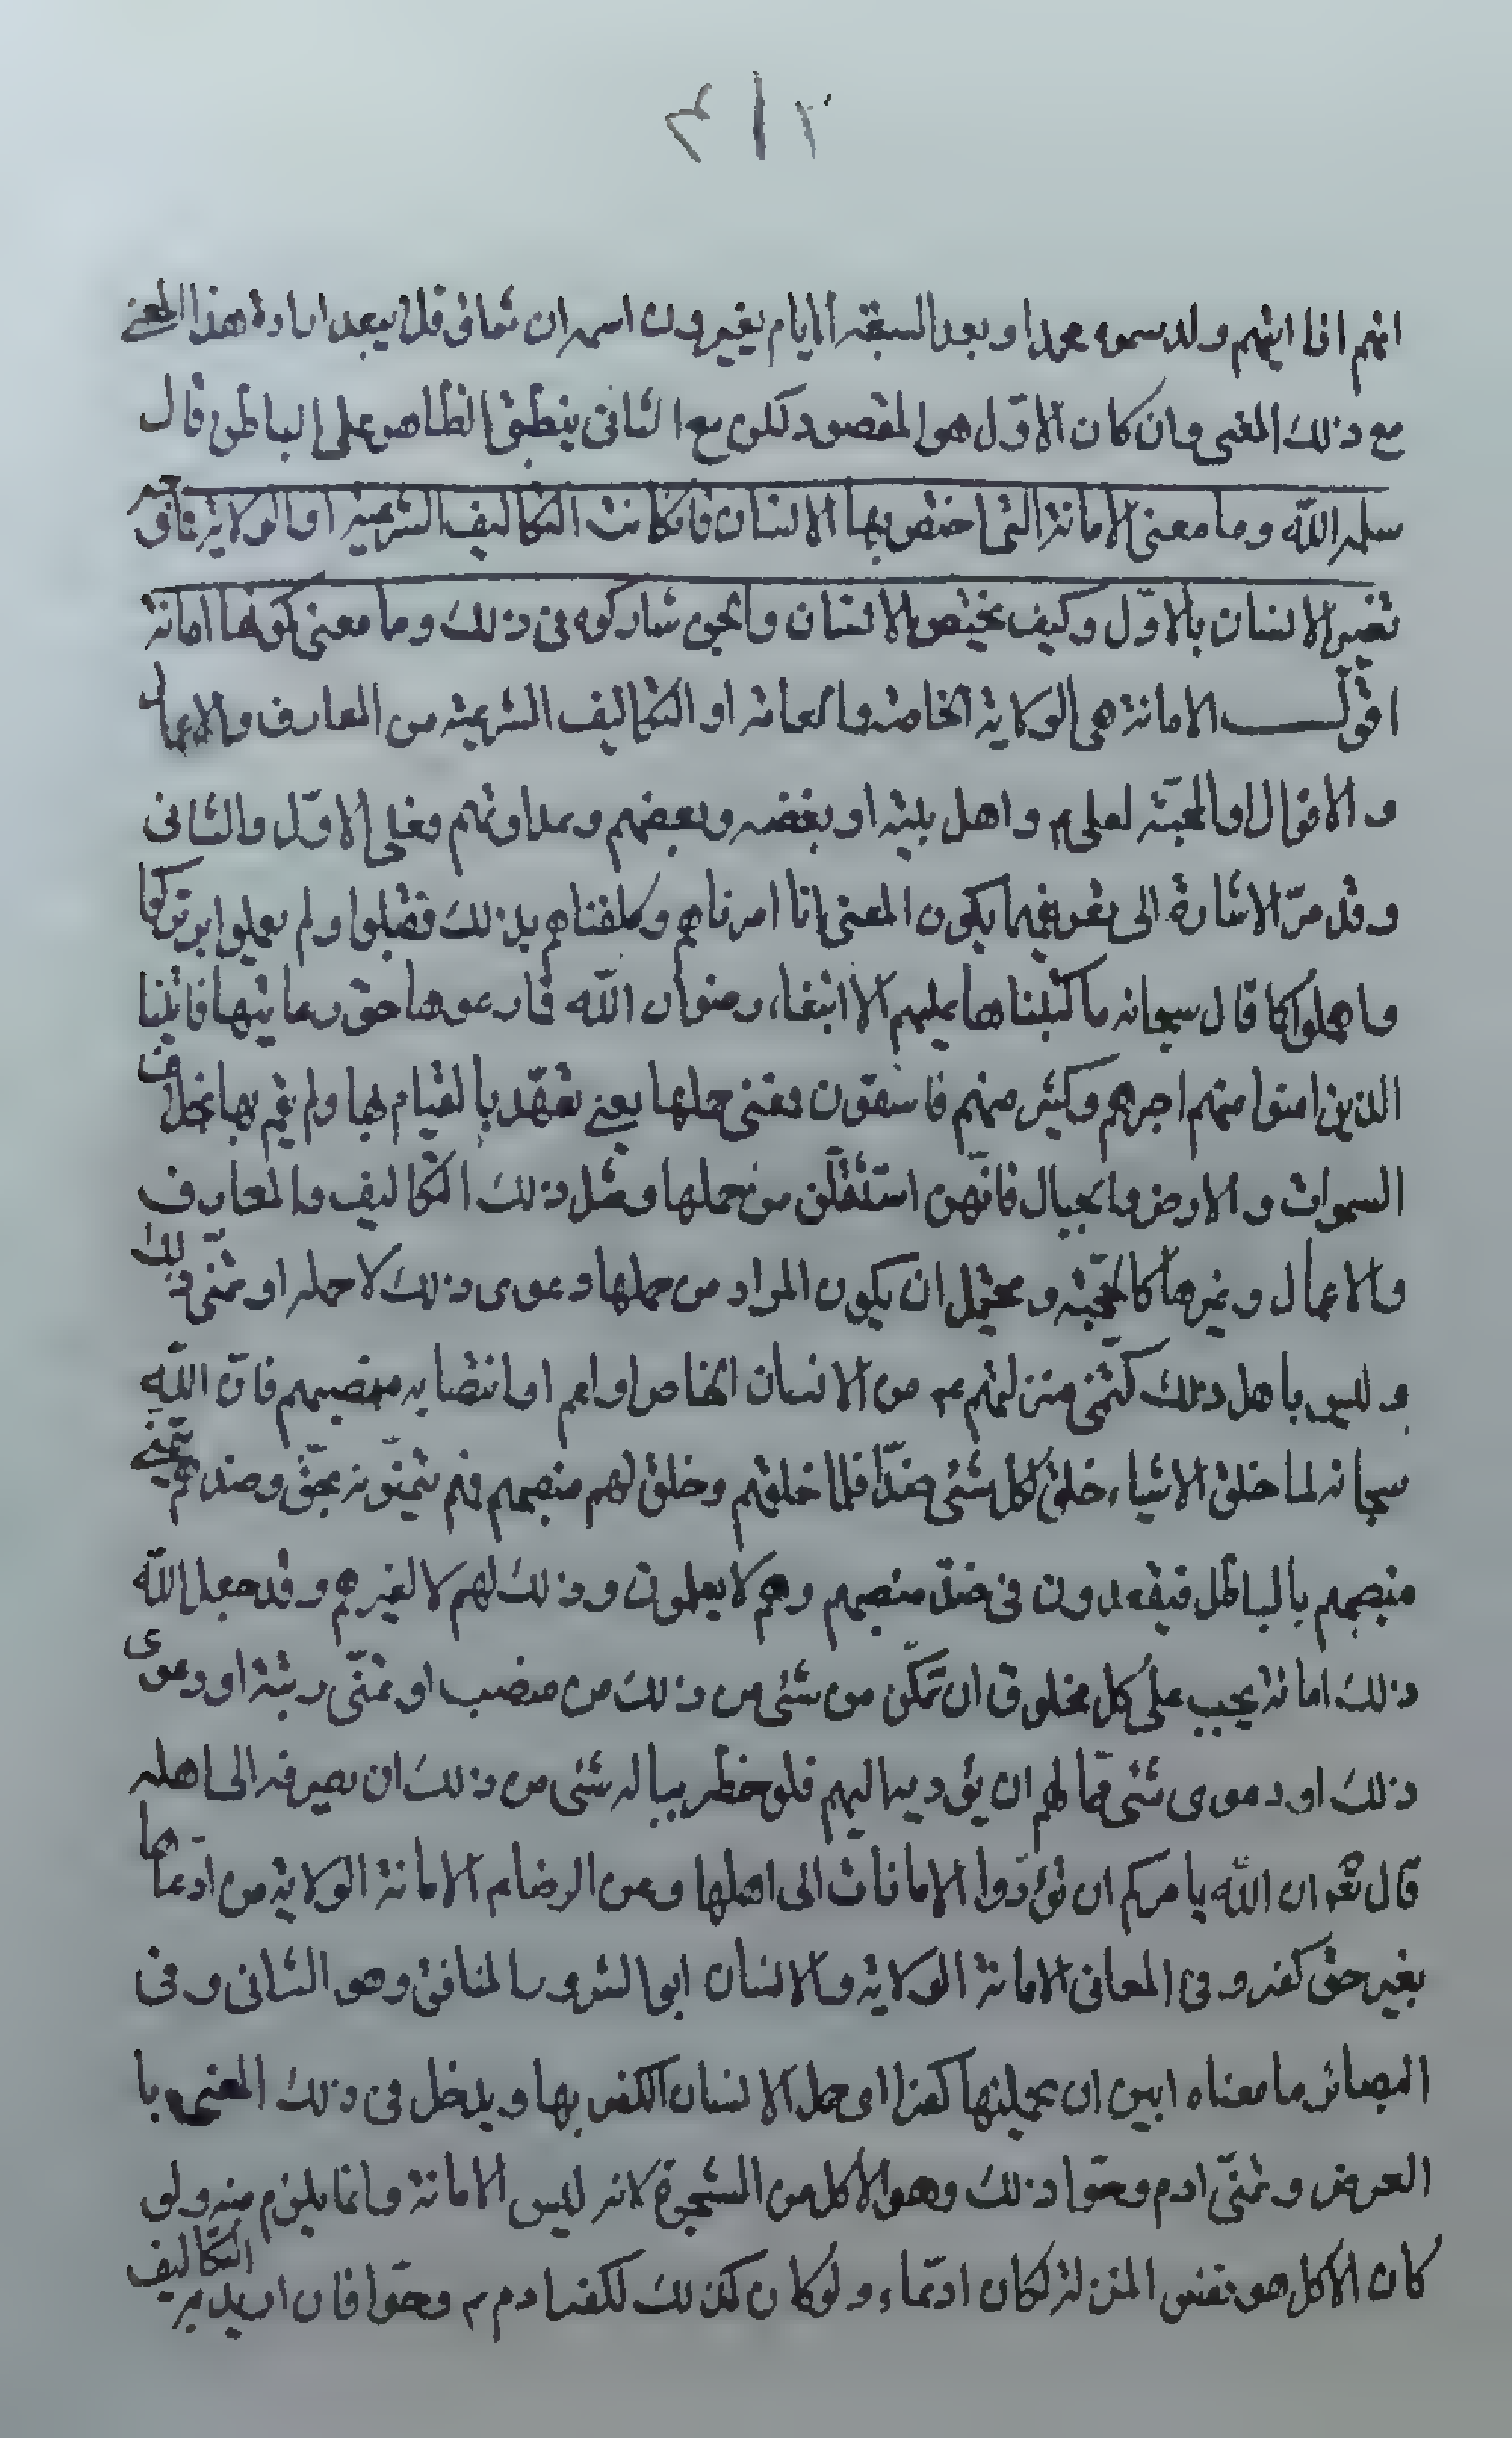 ٢١٣
انهم اذا اتيهم ولد سموه محمدا وبعد السبعة الايام يغيرون اسمه ان شاؤا فلا يبعد ارادة هذا المعنى
مع ذلك المعنى وان كان الاوّل هو المقصود لكن مع الثانى ينطبق الظاهر على الباطن قال
سلمه اللّه وما معنى الامانة التى اختص بها الانسان فان كانت التكاليف الشرعية او الولاية فاىّ
تفسير الانسان بالاوّل وكيف يختص الانسان والجن شاركوه فى ذلك وما معنى كونها امانة
اقول الامانة هى الولاية الخاصة والعامة او التكاليف الشرعية من المعارف والاعمال
و الاقوال او المحبّة لعلى م واهل بيته او بغضه وبغضهم وعداوتهم فعلى الاوّل والثانى
وقد مرّ الاشارة الى تعريفهما يكون المعنى انا امرناهم وكلفناهم بذلك فقبلوا ولم يعملوا بل تركوا
واهملوا كما قال سبحانه ما كتبناها عليهم الا ابتغاء رضوان اللّه فما رعوها حق رعايتها فاتينا
الذين امنوا منهم اجرهم وكثير منهم فاسقون فمعنى حملها يعنى تعهّد بالقيام بها ولم يقم بها بخلاف
السموات و الارض والجبال فانّهن استثقلن من حملها ومثل ذلك التكاليف والمعارف
والاعمال وغيرها كالمحبّة ويحتمل ان يكون المراد من حملها دعوى ذلك لا حمله او تمنّى ذلك
و ليس باهل ذلك كتمنّى منزلتهم عم من الانسان الخاص او اعم او انتصابه منصبهم فانّ اللّه
سبحانه لما خلق الاشياء خلق لكل شئ ضدّا فلما خلقهم وخلق لهم منصبهم فهم يتمنّونه بحقّ وضدهم يتمنّى
منصبهم بالباطل فيقعدون فى ضدّ منصبهم وهم لا يعلمون وذلك لهم لا لغيرهم وقد جعل اللّه
ذلك امانة يجب على كل مخلوق ان تمكّن من شئ من ذلك من منصب او تمنّى رتبة او دعوى
ذلك او دعوى شئ ممّا لهم ان يؤديه اليهم فلو خطر بباله شئ من ذلك ان يصرفه الى اهله
قال تعم ان اللّه يامركم ان تؤدّوا الامانات الى اهلها وعن الرضا م الامانة الولاية من ادّعاها
بغير حق كفر و فى المعانى الامانة الولاية والانسان ابوالشرور المنافق وهو الثانى وفى
البصائر ما معناه ابين ان يحملنها كفرا اى حمل الانسان الكفر بها ويدخل فى ذلك المعنى با
العرض وتمنّى ادم وحوّا ذلك وهو الاكل من الشجرة لانه ليس الامانة وانما يلزم منه ولو
كان الاكل هو نفس المنزلة لكان ادعاء ولو كان كذلك لكفر ادم م وحوّا فان اريد به التكاليف